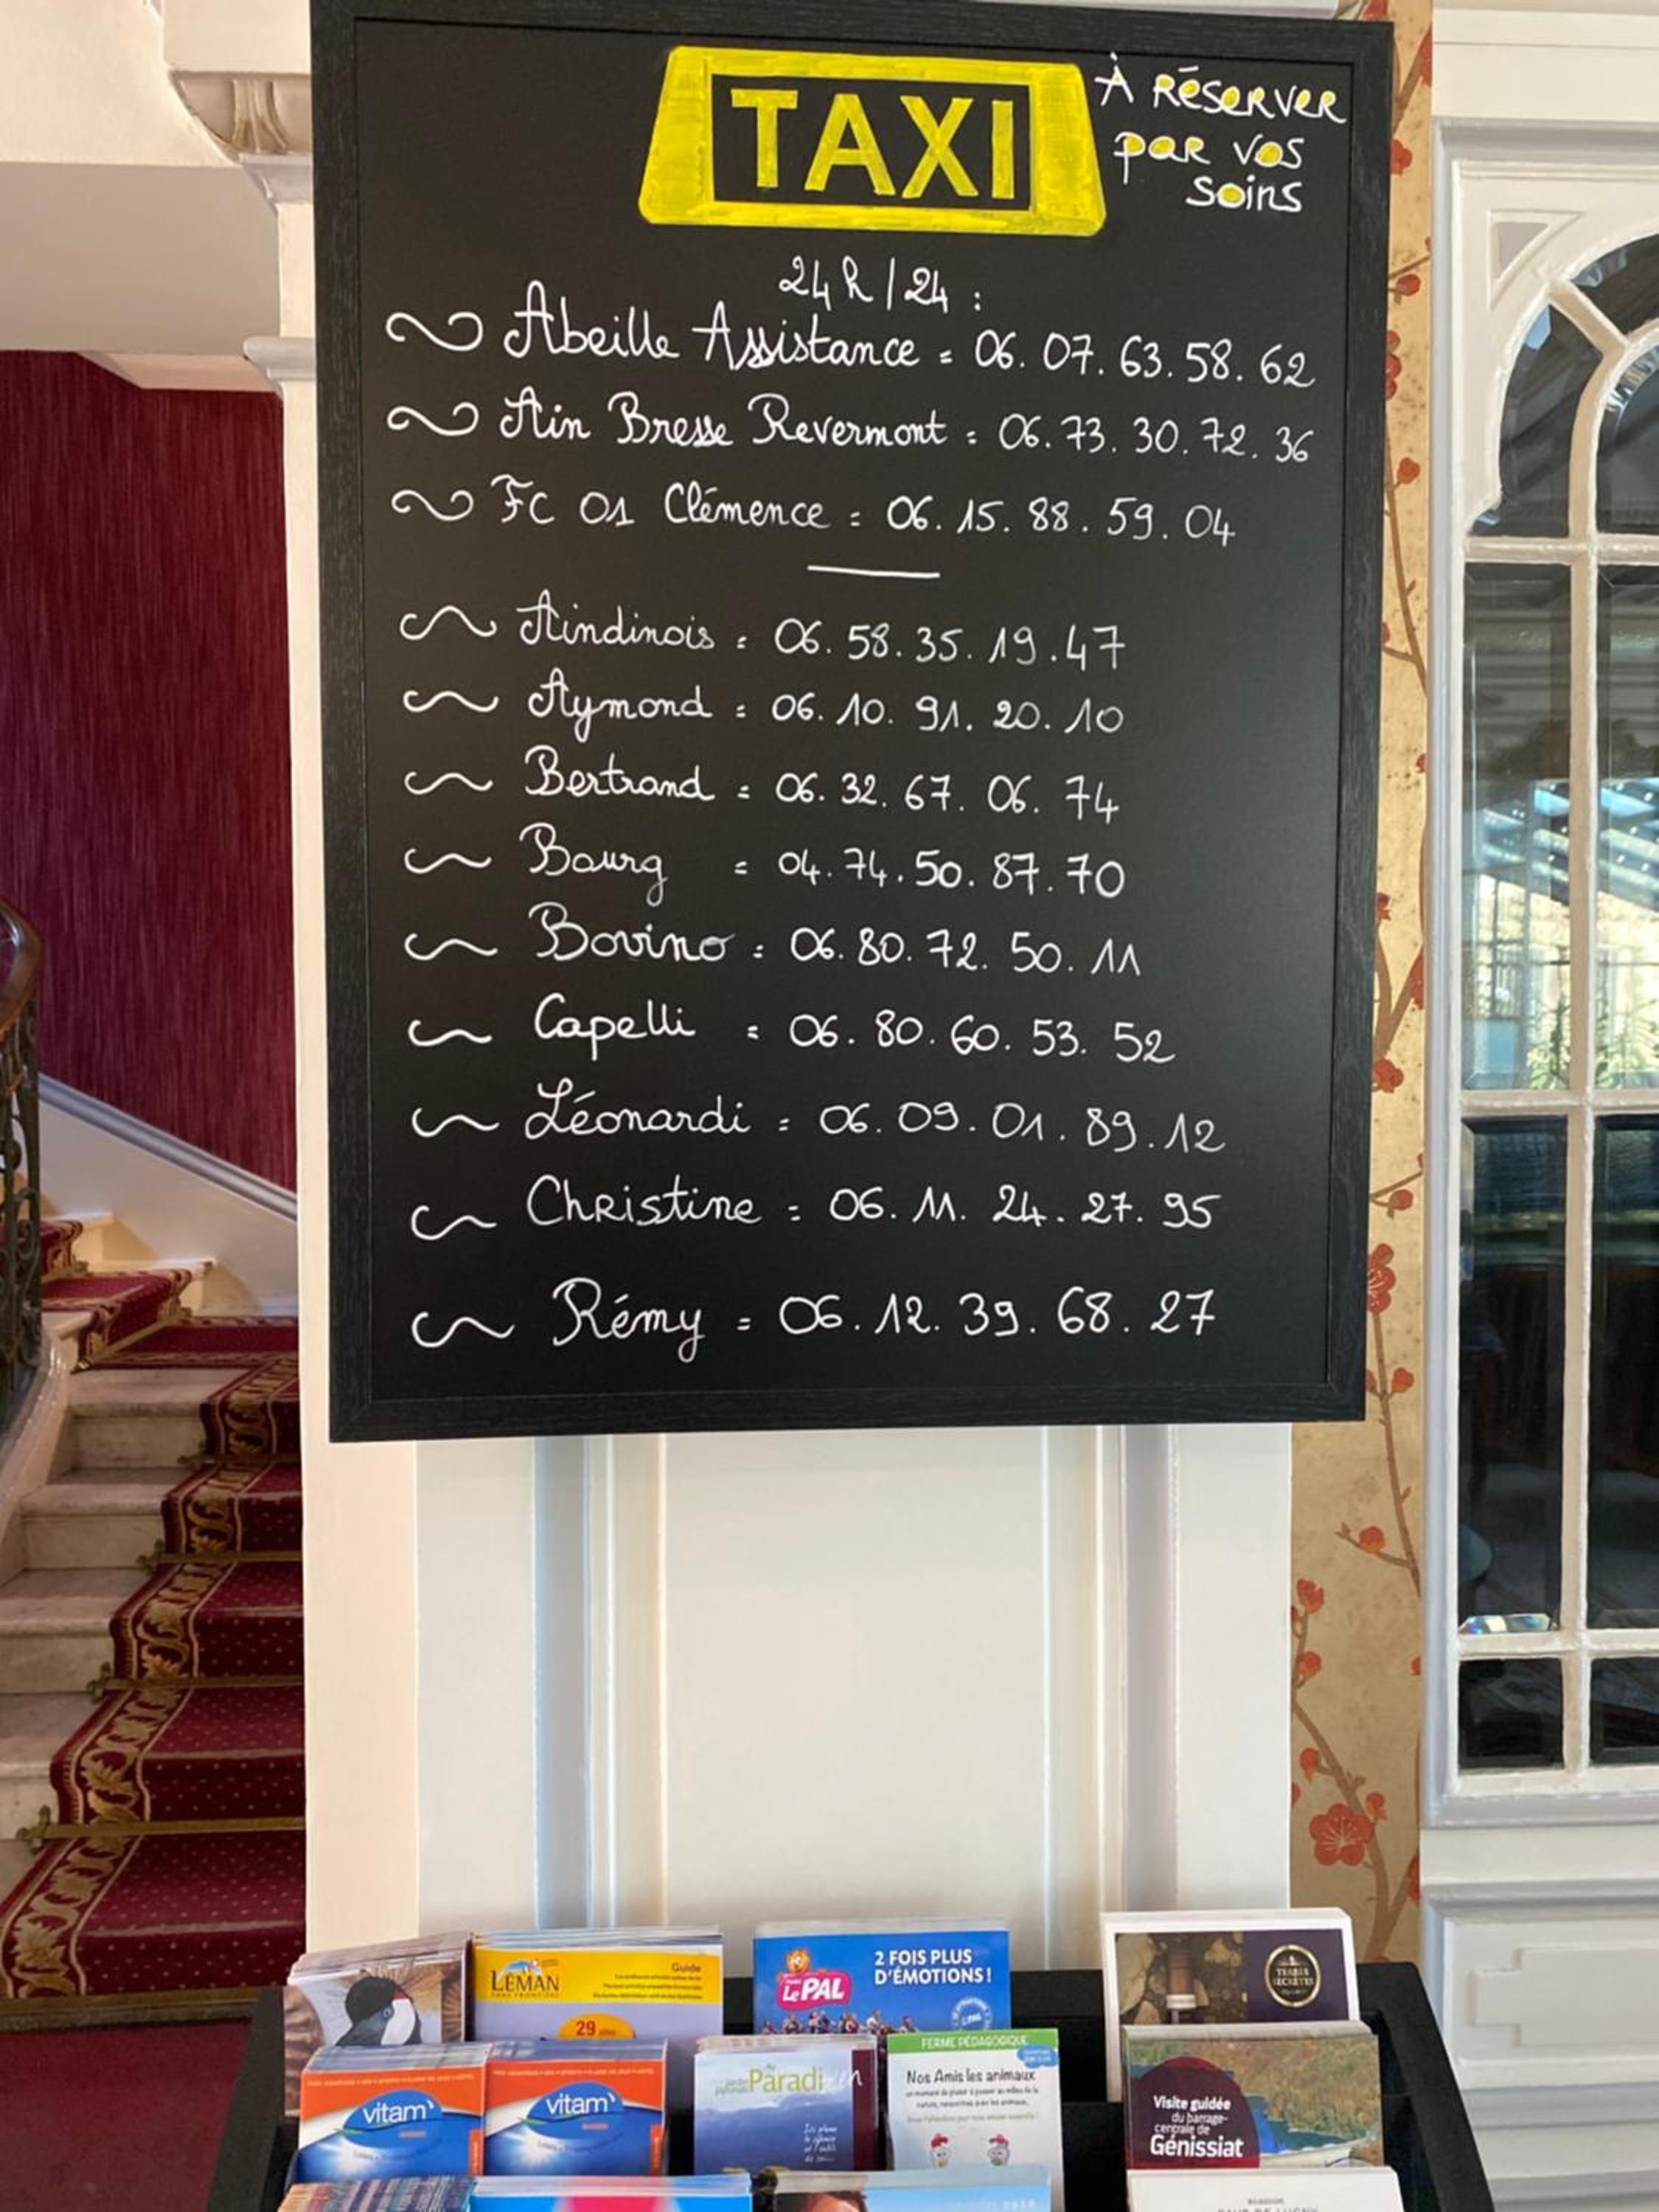 TAXI
À RÉSERVER
par vos
soins
24h/24 :
Abeille Assistance = 06. 07. 63. 58. 62
Ain Bresse Revermont = 06. 73. 30. 72. 36
FC 01 Clémence = 06. 15. 88. 59. 04
Aindinois = 06. 58. 35. 19. 47
Aymond = 06. 10. 91. 20. 10
Bertrand = 06. 32. 67. 06. 74
Bourg = 04. 74. 50. 87. 70
Bovino = 06. 80. 72. 50. 11
Capelli = 06. 80. 60. 53. 52
Léonardi = 06. 09. 01. 89. 12
Christine = 06. 11. 24. 27. 95
Rémy = 06. 12. 39. 68. 27
LÉMAN
Guide
29
Le PAL
2 FOIS PLUS
D'ÉMOTIONS !
TERRES
SECRETES
vitam'
vitam'
Paradi
FERME PÉDAGOGIQUE
Nos Amis les animaux
Visite guidée
du barrage-
centrale de
Génissiat